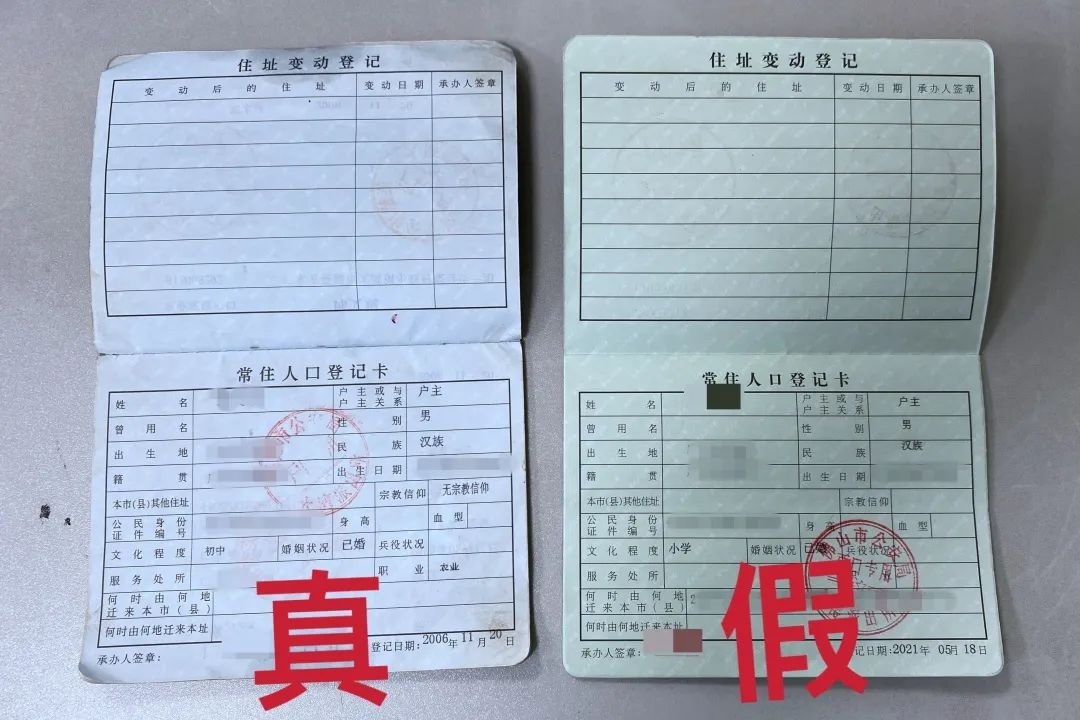 住址变动登记
变动后的住址 变动日期 承办人签章
常住人口登记卡
姓名 户主或与户主关系 户主
曾用名 性别 男
出生地 民族 汉族
籍贯 出生日期
本市(县)其他住址 宗教信仰 无宗教信仰
公民身份证件编号 身高 血型
文化程度 初中 婚姻状况 已婚 兵役状况
服务处所 职业 农业
何时由何地迁来本市(县)
何时由何地迁来本址
承办人签章: 登记日期:2006年11月20日
真
住址变动登记
变动后的住址 变动日期 承办人签章
常住人口登记卡
姓名 户主或与户主关系 户主
曾用名 性别 男
出生地 民族 汉族
籍贯 出生日期
本市(县)其他住址 宗教信仰
公民身份证件编号 身高 血型
文化程度 小学 婚姻状况 已婚 兵役状况
服务处所
何时由何地迁来本市(县)
何时由何地迁来本址
承办人签章: 记日期:2021年05月18日
佛山市公安局
假